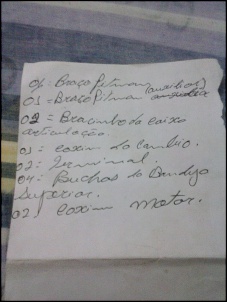 01 = Braço Pitman
01 = Braço Pitman (auxiliar)
02 = Bracinho do caixo
articulação.
01 = coxim do cambio.
02 = Terminal.
04 = Buchas da Bandeja
Superior.
02 coxim motor.